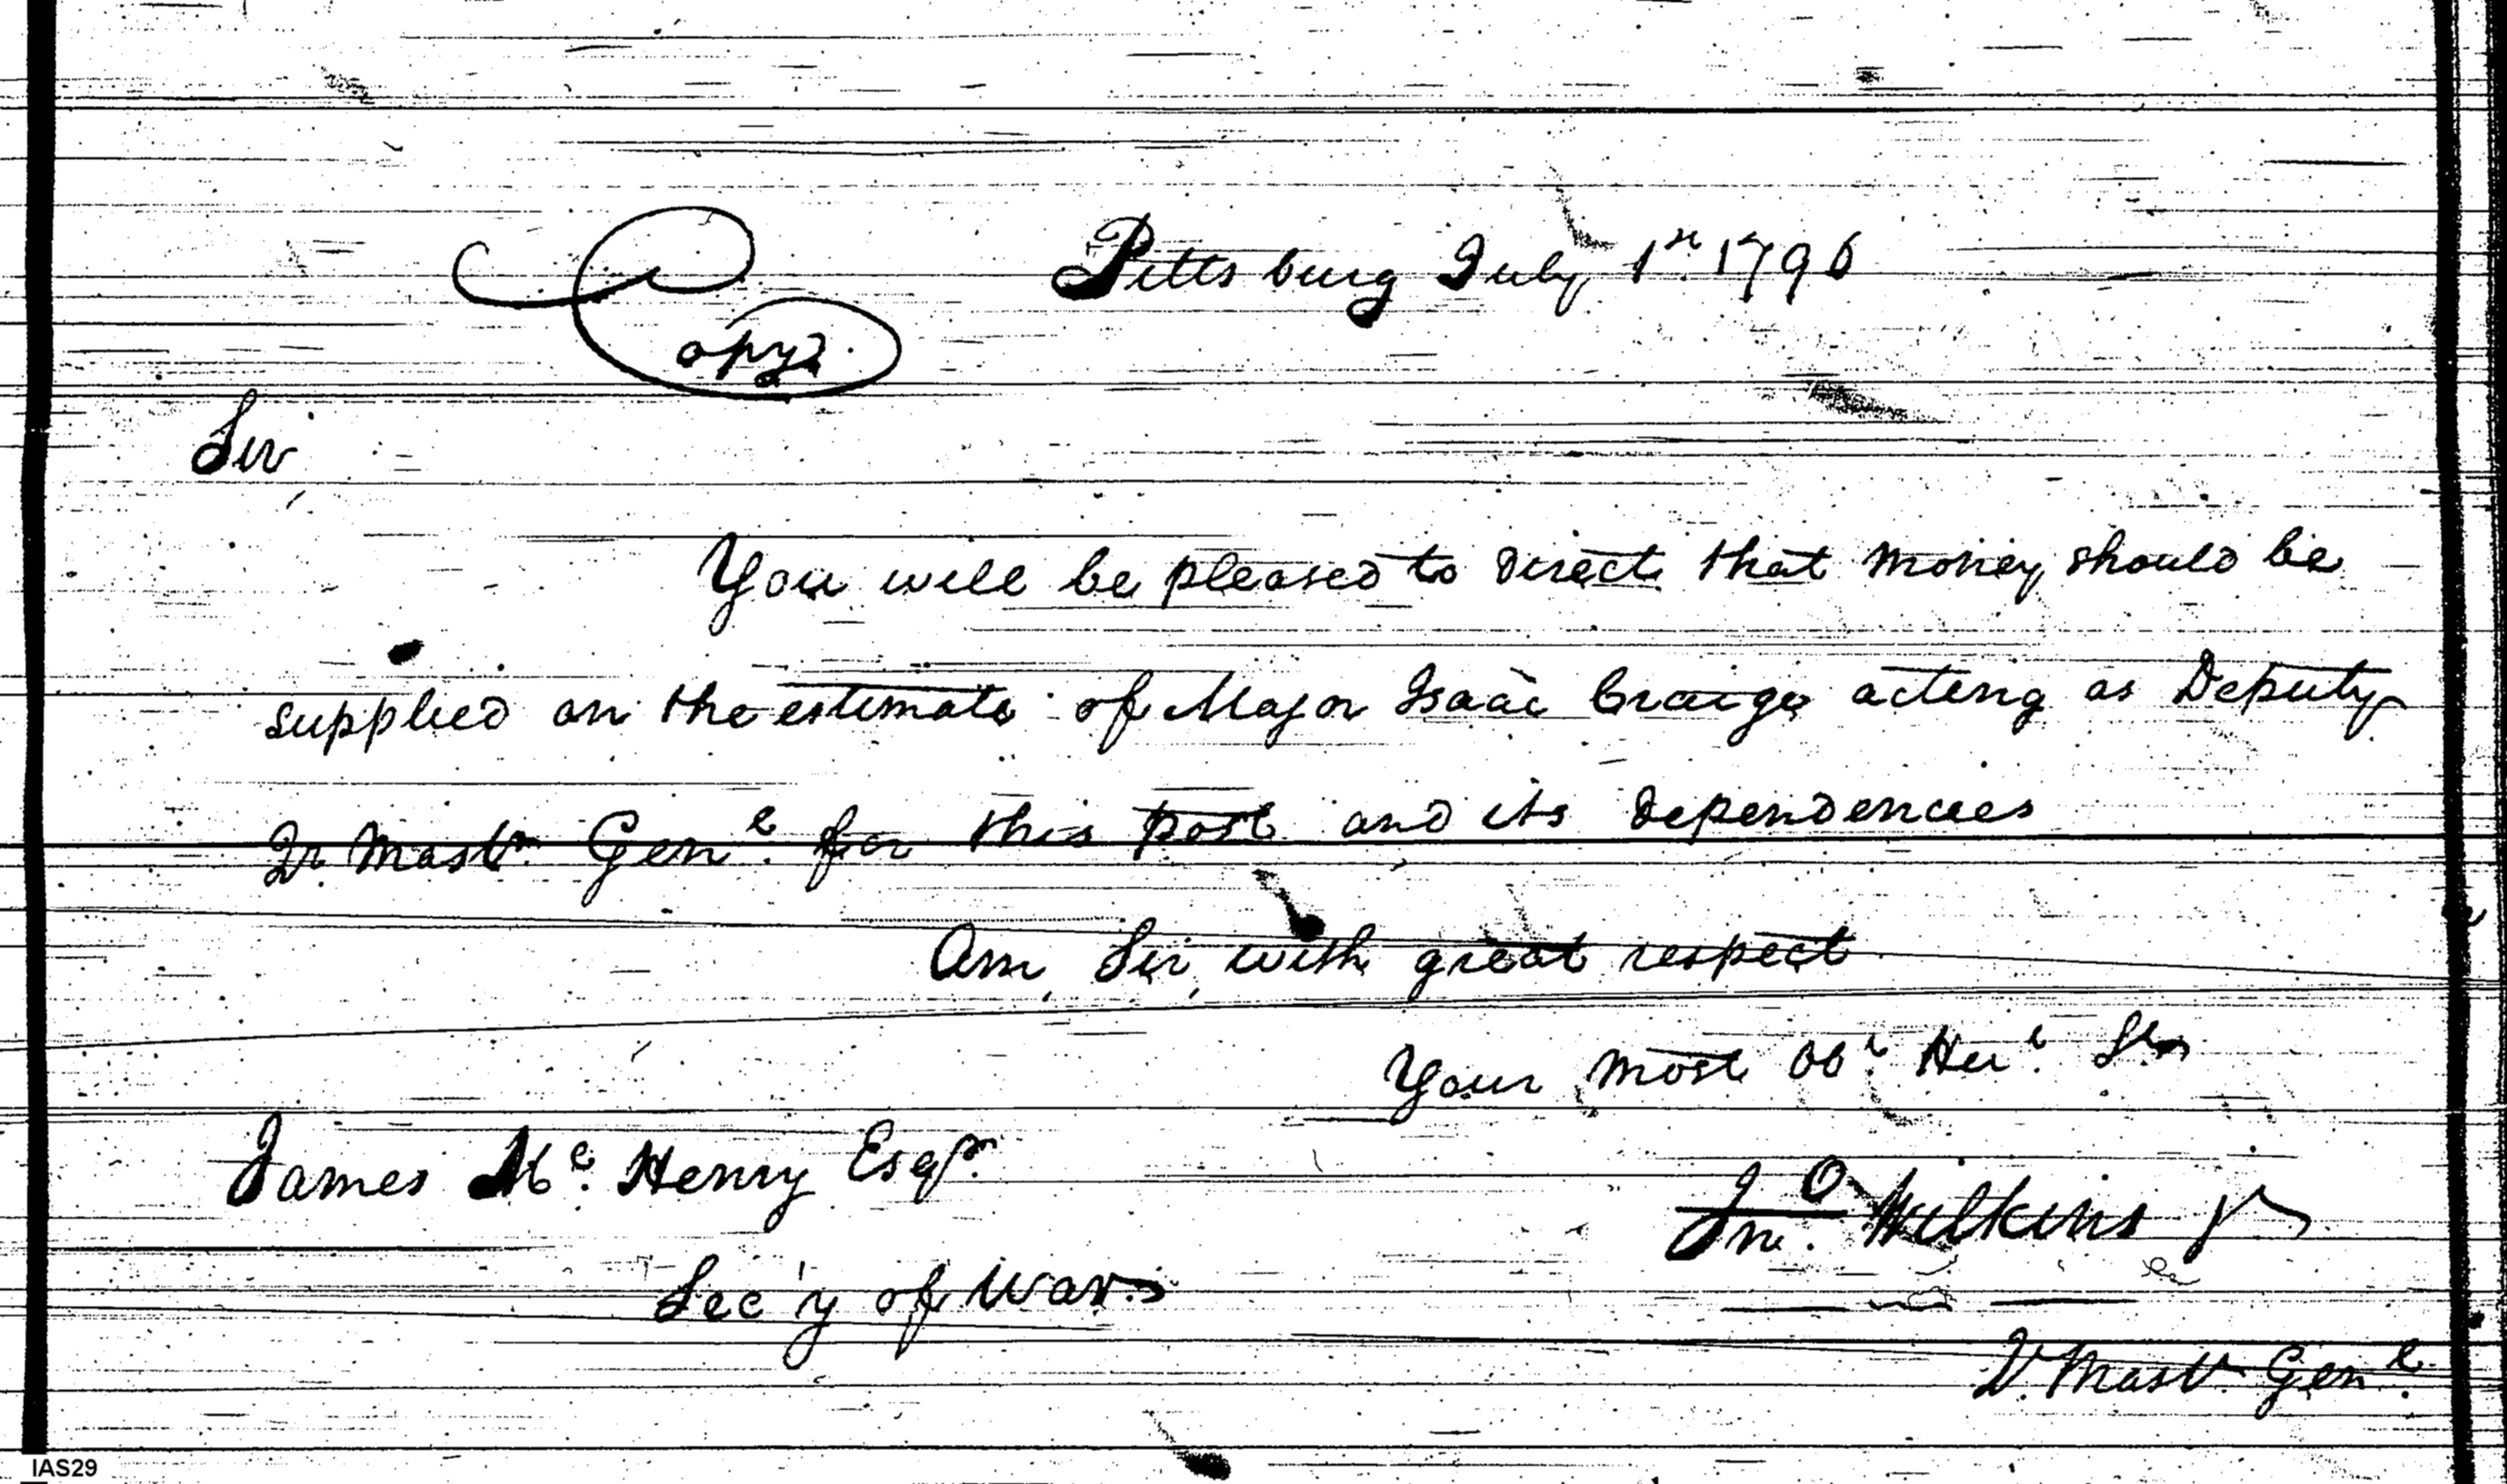 Copy.
Pittsburg July 1st 1796
Sir
You will be pleased to Direct that Money should be
supplied on the estimate of Major Isaac Craige acting as Deputy
Qr Mastr Genl for this post and its Dependencies
Am, Sir, with great respect
Your most Obt Hue St
James Mc Henry Esqr
Jno. Wilkins Jr
Sec'y of War
Q. Mastr Genl
IAS29